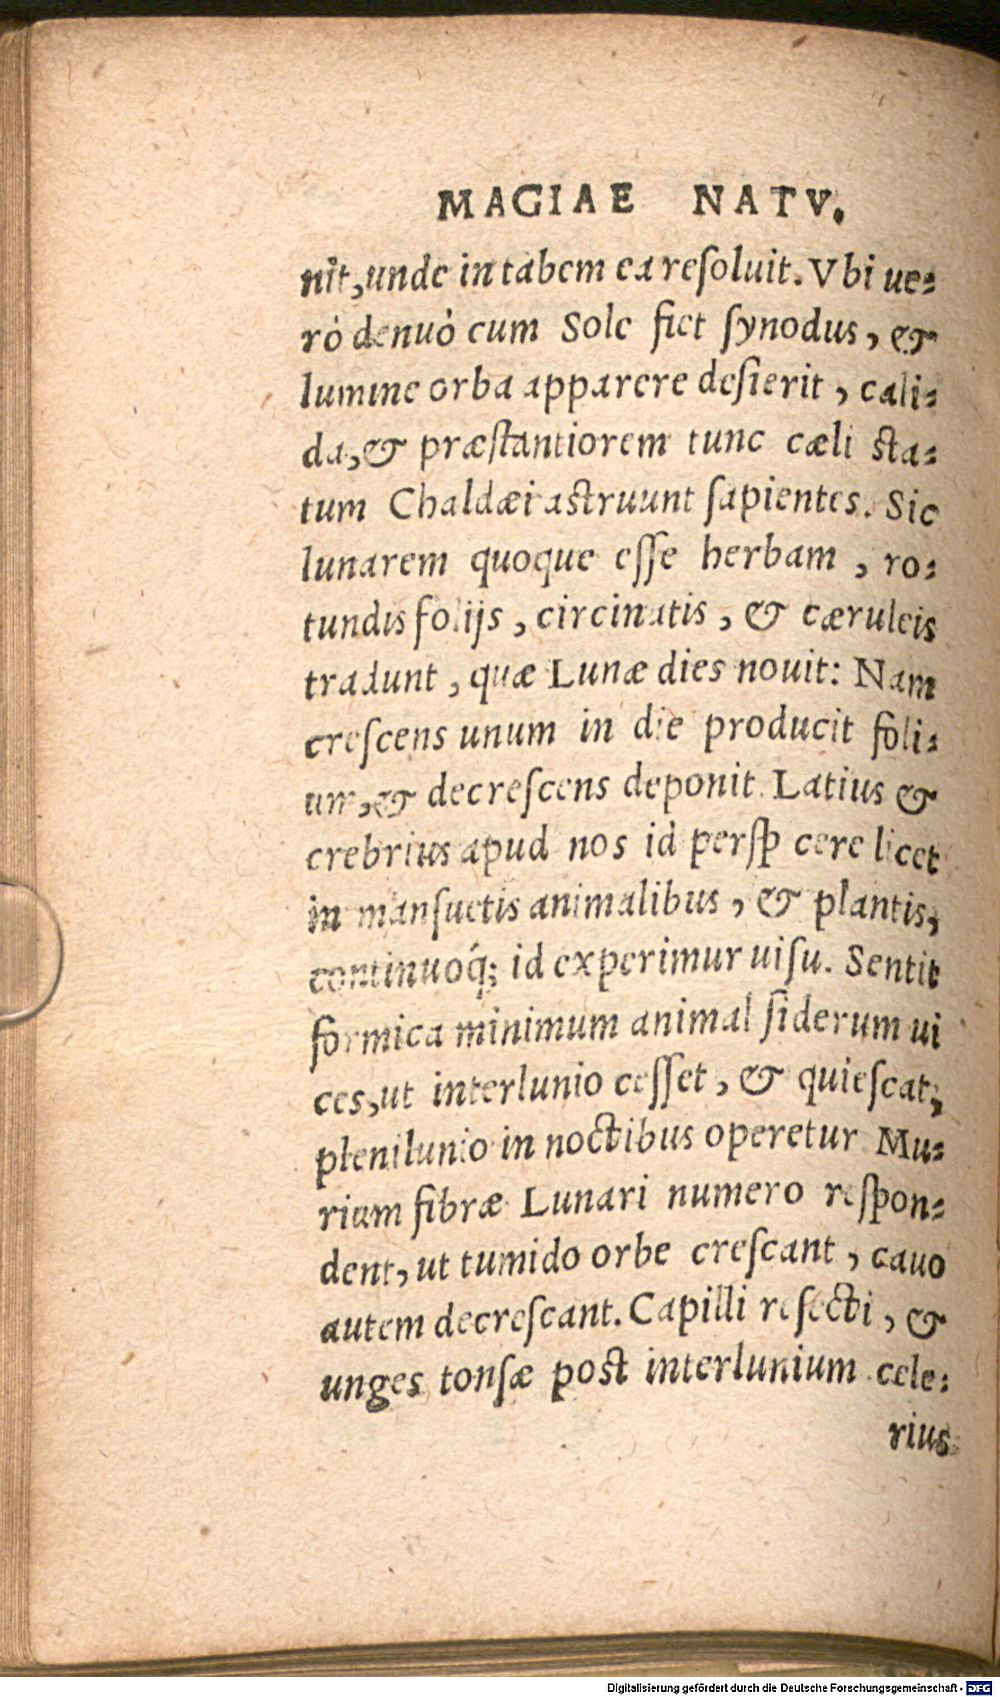 MAGIAE NATV.
nit, unde in tabem ea reſoluit. Vbi ue-
rò denuò cum Sole fiet ſynodus, &
lumine orba apparere deſierit, cali-
da, & præſtantiorem tunc cæli ſta-
tum Chaldæi aſtruunt ſapientes. Sic
lunarem quoque eſſe herbam, ro-
tundis folijs, circinatis, & cæruleis
tradunt, quæ Lunæ dies nouit: Nam
creſcens unum in die producit foli-
um, & decreſcens deponit. Latius &
crebrius apud nos id perſpicere licet
in manſuetis animalibus, & plantis,
continuoq́; id experimur uiſu. Sentit
formica minimum animal ſiderum ui
ces, ut interlunio ceſſet, & quieſcat,
plenilunio in noctibus operetur Mu-
rium fibræ Lunari numero reſpon-
dent, ut tumido orbe creſcant, cauo
autem decreſcant. Capilli reſecti, &
unges tonſæ poſt interlunium cele-
rius
Digitalisierung gefördert durch die Deutsche Forschungsgemeinschaft - DFG